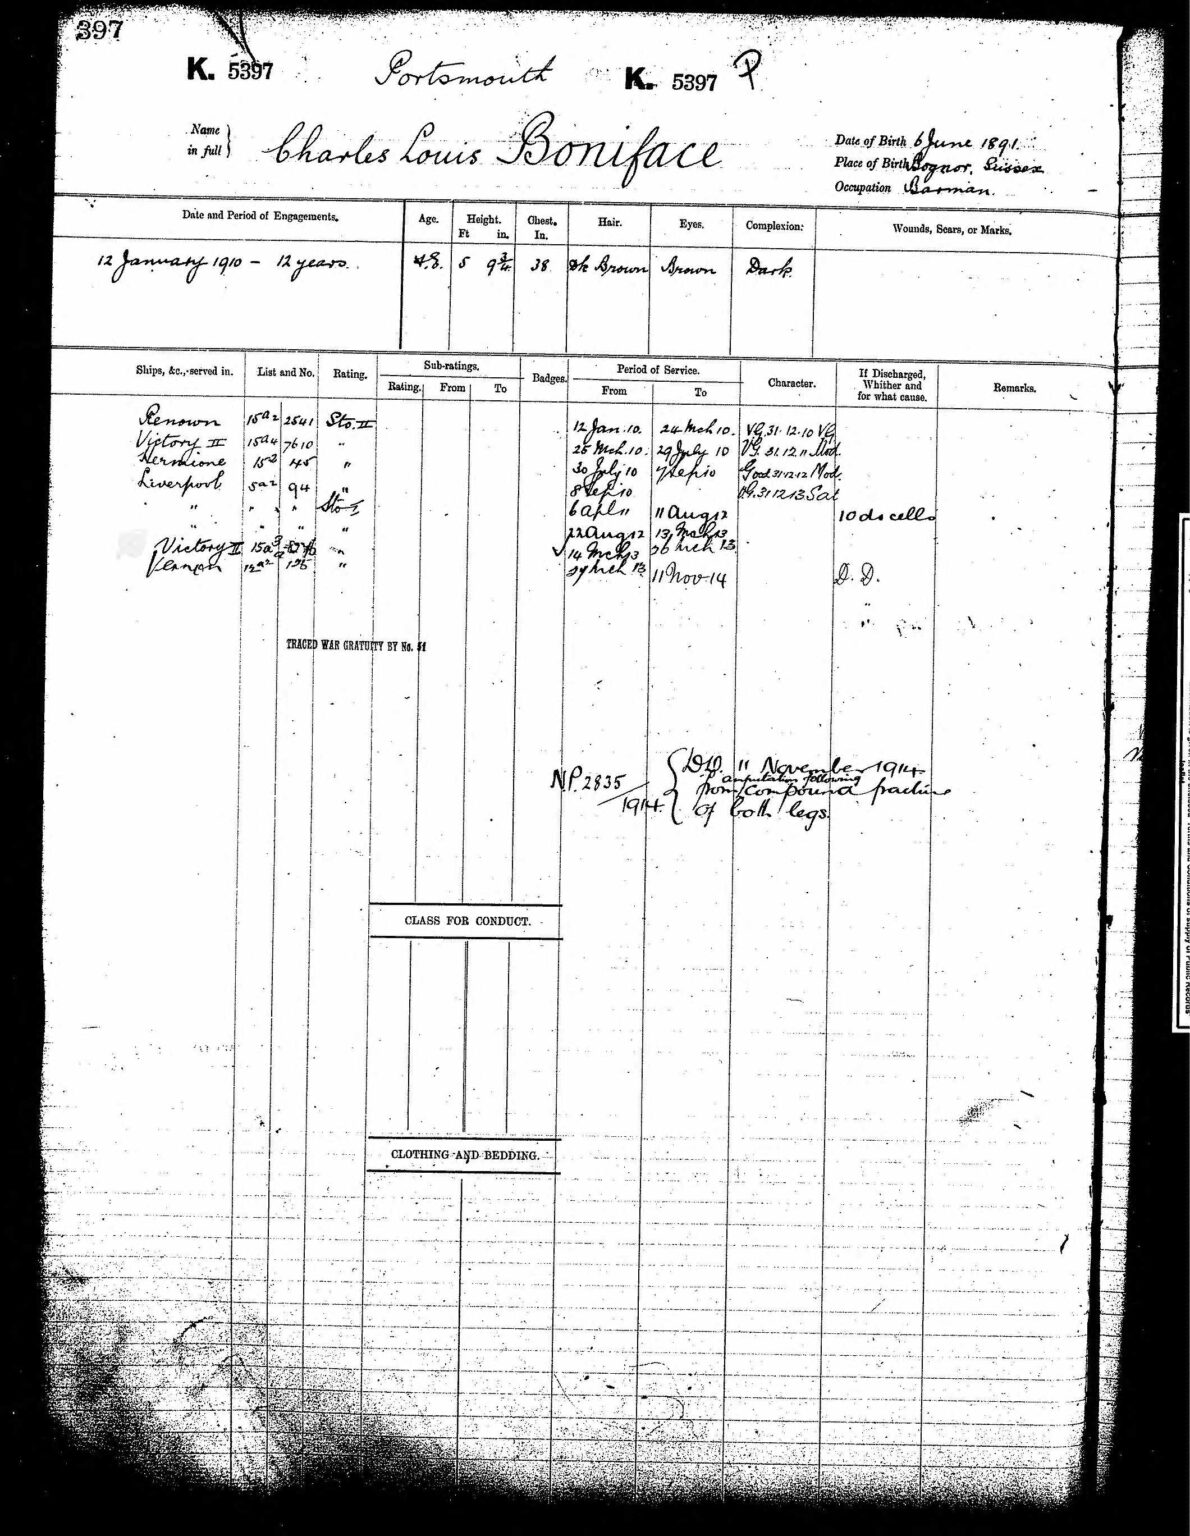 397
K. 5397 Portsmouth K. 5397 P
Name in full } Charles Louis Boniface
Date of Birth 6 June 1891.
Place of Birth Bognor, Sussex
Occupation Barman.
Date and Period of Engagements. Age. Height. Ft in. Chest. In. Hair. Eyes. Complexion: Wounds, Scars, or Marks.
12 January 1910 – 12 years. 5 9¾ 38 Dk Brown Brown Dark
Ships, &c., served in. List and No. Rating. Sub-ratings. Rating. From To Badges. Period of Service. From To Character. If Discharged, Whither and for what cause. Remarks.
Renown 15a2 2541 Sto. II 12 Jan. 10. 24 Mch 10. VG. 31.12.10 VG
Victory II 15a4 7610 " 25 Mch. 10. 29 July 10 VG. 31.12.11 Mod.
Hermione 15a 45 " 30 July 10 7 Sep 10 Good 31.12.12 Mod.
Liverpool 5a2 94 " 8 Sep 10 VG. 31.12.13 Sat
" " " Sto I 6 Apl 11 11 Aug 12 10 ds cells
" " " " 22 Aug 12 13 Mch 13
Victory II " 14 Mch 13 26 Mch 13
Vernon " 27 Mch 13 11 Nov 14 D. D.
TRACED WAR GRATUITY BY No. 51
N.P. 2835/1914. { D.D. 11 November 1914.
amputation following
from compound fracture
of both legs.
CLASS FOR CONDUCT.
CLOTHING AND BEDDING.